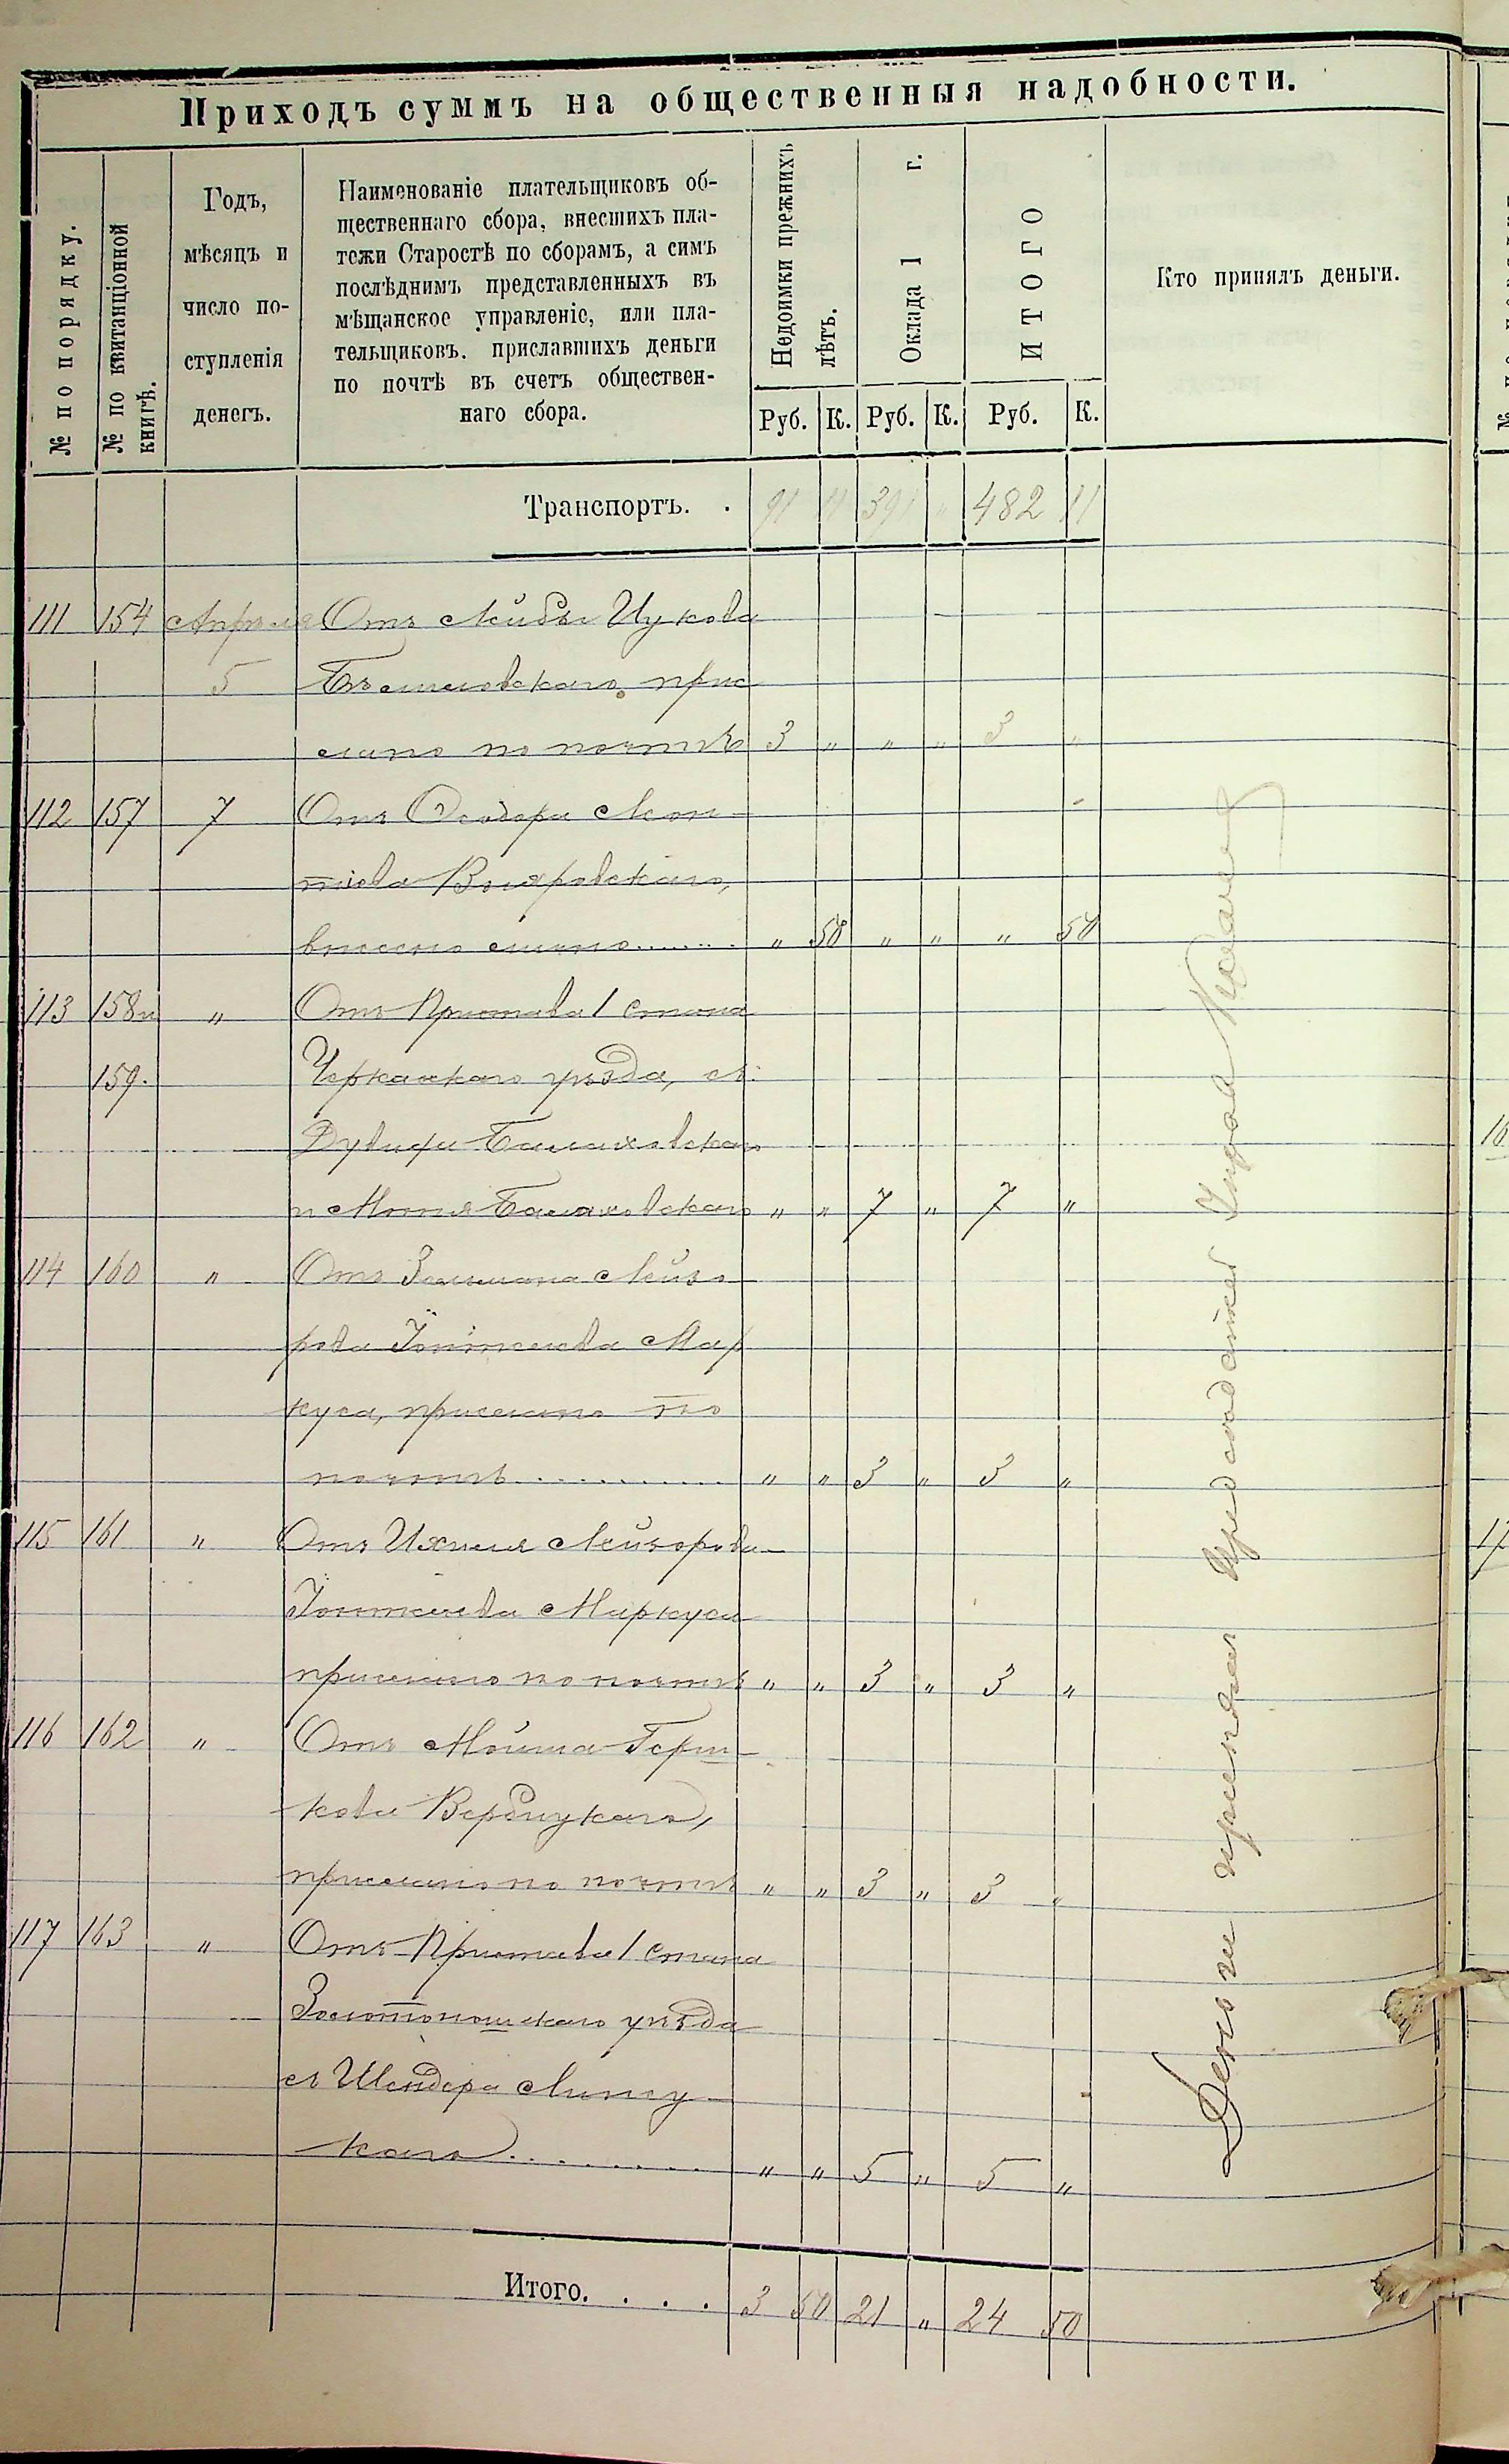 Приходъ суммъ на общественныя надобности.
№ по порядку.
№ по квитанціонной книгѣ.
Годъ,
мѣсяцъ и
число по-
ступленія
денегъ.
Наименованіе плательщиковъ об-
щественнаго сбора, внесшихъ пла-
тежи Старостѣ по сборамъ, а симъ
послѣднимъ представленныхъ въ
мѣщанское управленіе, или пла-
тельщиковъ. приславшихъ деньги
по почтѣ въ счетъ обществен-
наго сбора.
Недоимки прежнихъ лѣтъ.
Оклада 1 г.
ИТОГО
Кто принялъ деньги.
Руб. К. Руб. К. Руб. К.
Транспортъ. . 91 11 391 " 482 11
111 154 Апрѣля Отъ Лейбы Ицкова
5 прис
лано по почтѣ 3 " " " 3 "
112 157 7 Отъ Ѳеодора Леон-
тіева
внесено лично........ " 50 " " " 50
113 158 и " Отъ Пристава 1 стана
159. Черкаскаго уѣзда, съ:
Дувида Балаховскаго
и Мотя Балаховскаго " " 7 " 7 "
114 160 " Отъ Зельмана Лейзо
рова Іонтелева Мар
куса, прислано по
почтѣ............ " " 3 " 3 "
115 161 " Отъ Ихиля Лейзорова
Іонтелева Маркуса
прислано по почтѣ " " 3 " 3 "
116 162 " Отъ Мойша Герш-
кова Вербицкаго,
прислано по почтѣ " " 3 " 3 "
117 163 " Отъ Пристава 1 стана
Золотоношскаго уѣзда
съ Шендера Липец-
каго.......... " " 5 " 5 "
Итого. . . . 3 50 21 " 24 50
Деньги принялъ